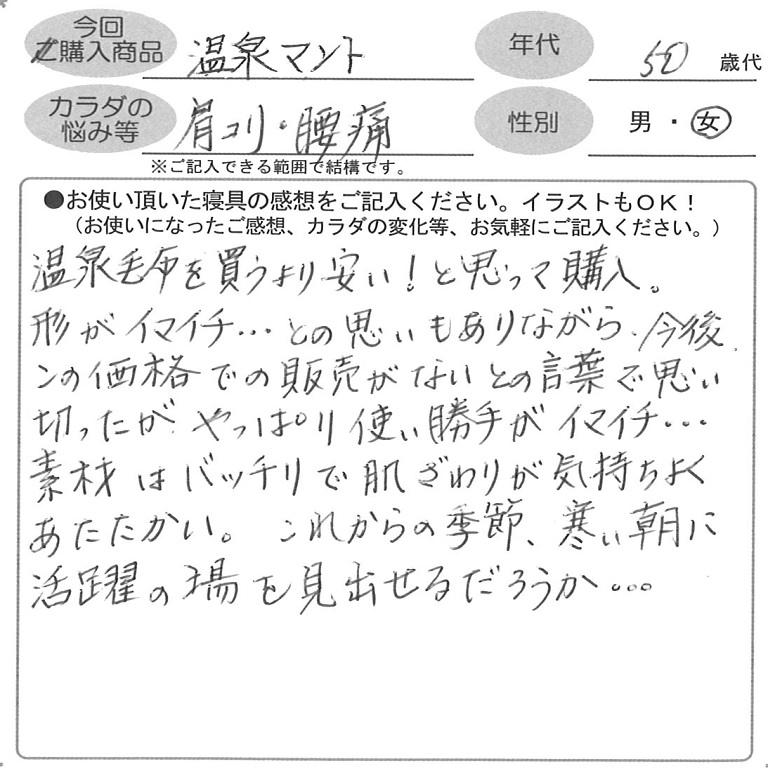 今回
ご購入商品 温泉マント 年代 50 歳代
カラダの
悩み等 肩コリ・腰痛 性別 男・女
※ご記入できる範囲で結構です。
●お使い頂いた寝具の感想をご記入ください。イラストもOK!
(お使いになったご感想、カラダの変化等、お気軽にご記入ください。)
温泉毛布を買うより安い!と思って購入。
形がイマイチ…との思いもありながら、今後
この価格での販売がないとの言葉で思い
切ったが、やっぱり使い勝手がイマイチ…
素材はバッチリで肌ざわりが気持ちよく
あたたかい。 これからの季節、寒い朝に
活躍の場を見出せるだろうか…